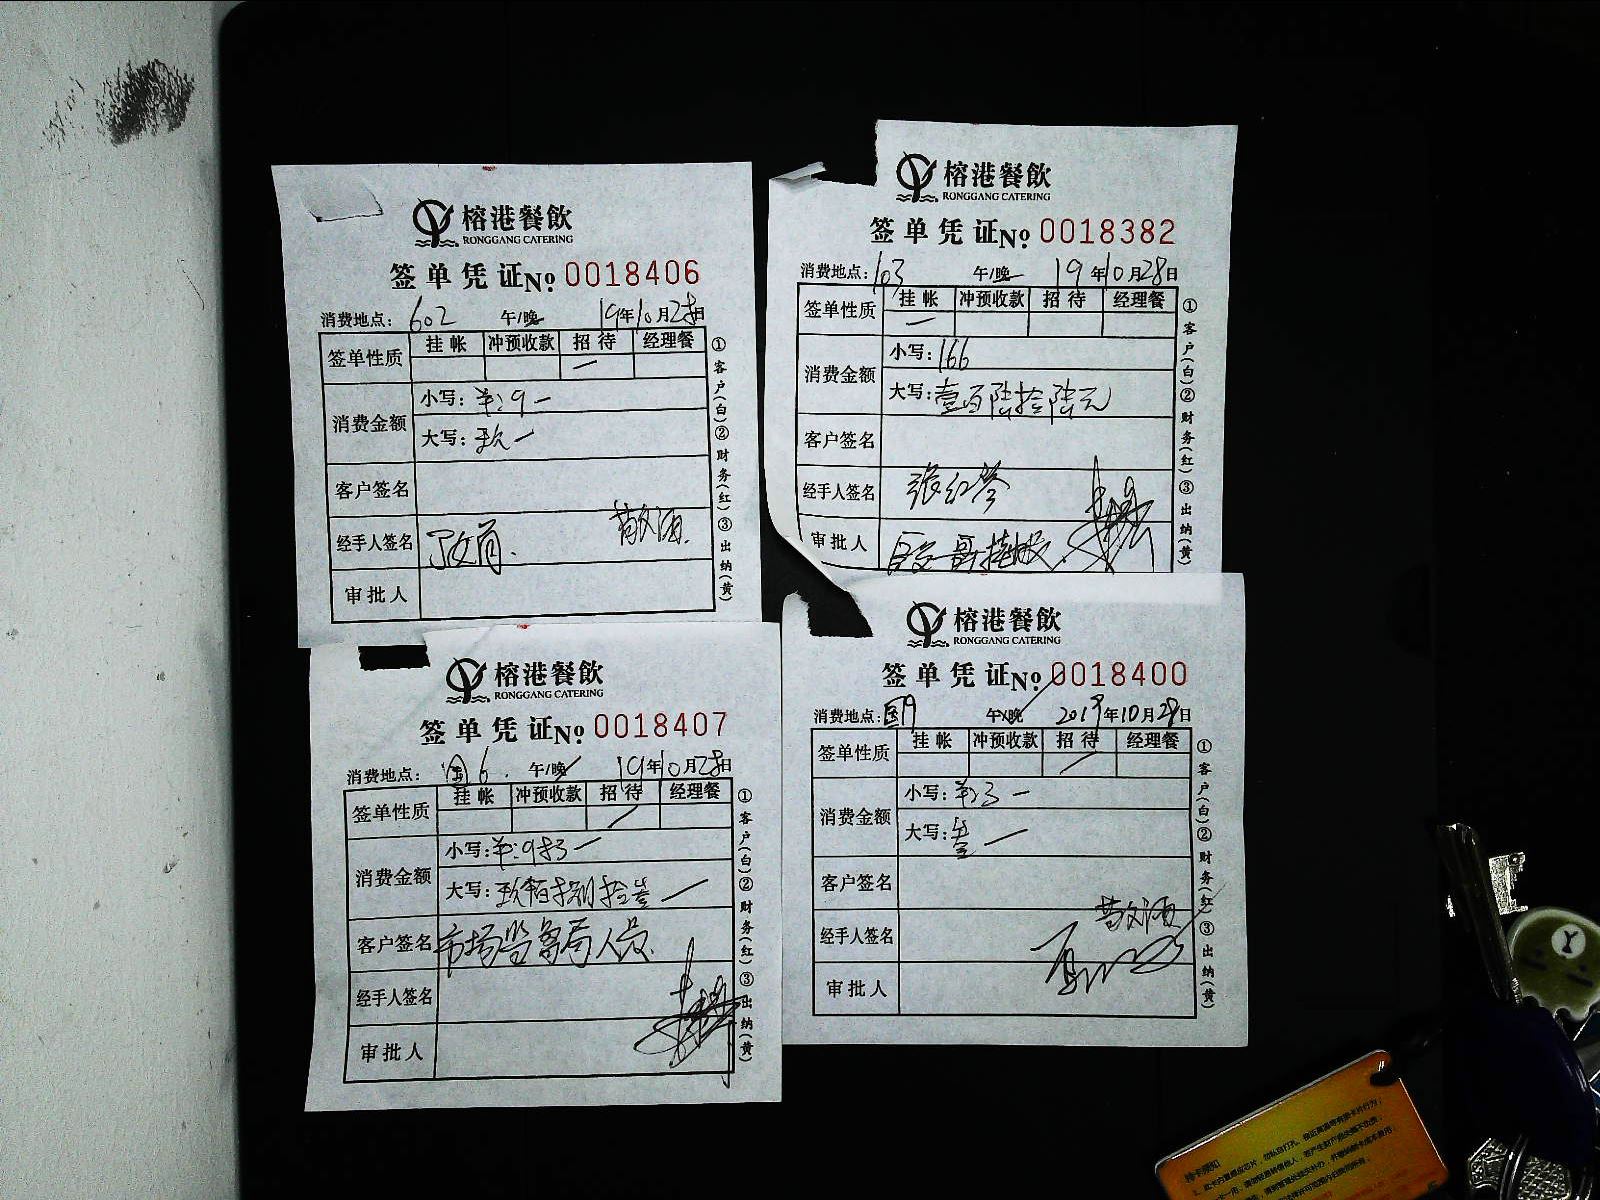 榕港餐飲
RONGGANG CATERING
签单凭证No 0018406
消费地点: 602 午/晚 19年10月28日
签单性质 挂帐 冲预收款 招待 经理餐
消费金额 小写: 羊:9一
大写: 玖一
客户签名
经手人签名
审批人
①客户(白)②财务(红)③出纳(黄)
榕港餐飲
RONGGANG CATERING
签单凭证No 0018382
消费地点: 103 午/晚 19年10月28日
签单性质 挂帐 冲预收款 招待 经理餐
消费金额 小写: 166
大写: 壹百陆拾陆元
客户签名
经手人签名 张红
审批人
①客户(白)②财务(红)③出纳(黄)
榕港餐飲
RONGGANG CATERING
签单凭证No 0018407
消费地点: 6. 午/晚 19年10月28日
签单性质 挂帐 冲预收款 招待 经理餐
消费金额 小写: 983一
大写: 玖佰捌拾叁
客户签名 市场监督局人员.
经手人签名
审批人
①客户(白)②财务(红)③出纳(黄)
榕港餐飲
RONGGANG CATERING
签单凭证No 0018400
消费地点: 午/晚 2019年10月28日
签单性质 挂帐 冲预收款 招待 经理餐
消费金额 小写: 3一
大写: 叁
客户签名
经手人签名
审批人
①客户(白)②财务(红)③出纳(黄)
Y
持卡须知